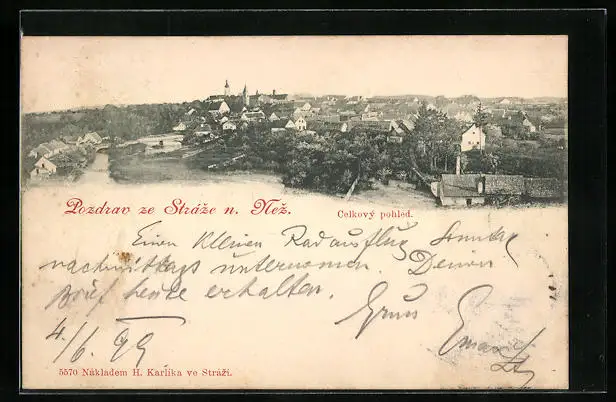 Pozdrav ze Stráže n. Než.
Celkový pohled.
Einen kleinen Radausflug Sonntag
nachmittags unternomen. Deinen
Brief heute erhalten.
Gruss
4/6 99
5570 Nákladem H. Karlíka ve Stráži.